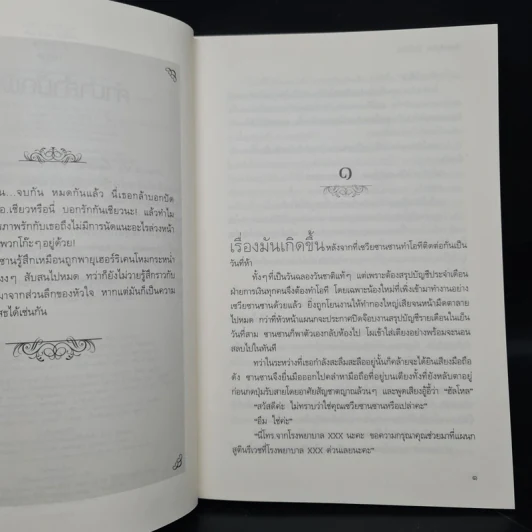 น...จบกัน หมดกันแล้ว นี่เธอกล้าบอกปัด
อ.เซียวหรือนี่ บอกรักกันเชียวนะ! แล้วทำไม
ภาพรักกับเธอถึงไม่มีการนัดแนะอะไรล่วงหน้า
พวกโก๊ะๆ อยู่ด้วย!
ซานรู้สึกเหมือนถูกพายุเฮอร์ริเคนโหมกระหน่ำ
งงๆ สับสนไปหมด ทว่าก็ยังไม่วายรู้สึกราวกับ
มาจากส่วนลึกของหัวใจ หากแต่มันเป็นความ
ธได้เช่นกัน
๑
เรื่องมันเกิดขึ้นหลังจากที่เซวียซานซานทำโอทีติดต่อกันเป็น
วันที่ห้า
ทั้งๆ ที่เป็นวันฉลองวันชาติแท้ๆ แต่เพราะต้องสรุปบัญชีประจำเดือน
ฝ่ายการเงินทุกคนจึงต้องทำโอที โดยเฉพาะน้องใหม่ที่เพิ่งเข้ามาทำงานอย่าง
เซวียซานซานด้วยแล้ว ยิ่งถูกโยนงานให้ทำกองใหญ่เสียจนหน้ามืดตาลาย
ไปหมด กว่าที่หัวหน้าแผนกจะประกาศปิดจ๊อบงานสรุปบัญชีรายเดือนในเย็น
วันที่สาม ซานซานก็พาตัวเองกลับห้องไป โผเข้าใส่เตียงอย่างพร้อมจะนอน
สลบไปในทันที
ทว่าในระหว่างที่เธอกำลังสะลึมสะลืออยู่นั้นก็คล้ายจะได้ยินเสียงมือถือ
ดัง ซานซานจึงยื่นมือออกไปคลำหามือถือที่อยู่บนเตียงทั้งที่ยังหลับตาอยู่
ก่อนกดปุ่มรับสายโดยอาศัยสัญชาตญาณล้วนๆ และพูดเสียงอู้อี้ว่า “ฮัลโหล”
“สวัสดีค่ะ ไม่ทราบว่าใช่คุณเซวียซานซานหรือเปล่าคะ”
“อืม ใช่ค่ะ”
“นี่โทร.จากโรงพยาบาล XXX นะคะ ขอความกรุณาคุณช่วยมาที่แผนก
สูตินรีเวชที่โรงพยาบาล XXX ด่วนเลยนะคะ”
๑